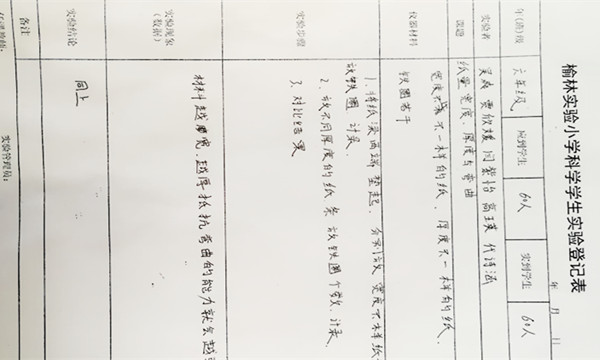 榆林实验小学科学学生实验登记表
年 月 日
年(班)级 六年级 应到学生 60人 实到学生 60人
实验者
课题 纸量宽度、厚度与弯曲
仪器材料 宽度不一样的纸、厚度不一样的纸、
铁圈若干
实验步骤 1、将纸梁两端垫起、分别放宽度不样纸
放铁圈 计录
2、放不同厚度的纸条 放铁圈个数、计录、
3、对比结果
实验现象
(数据) 材料越宽,越厚抵抗弯曲的能力就会越
实验结论 同上
备注
实验管理员: